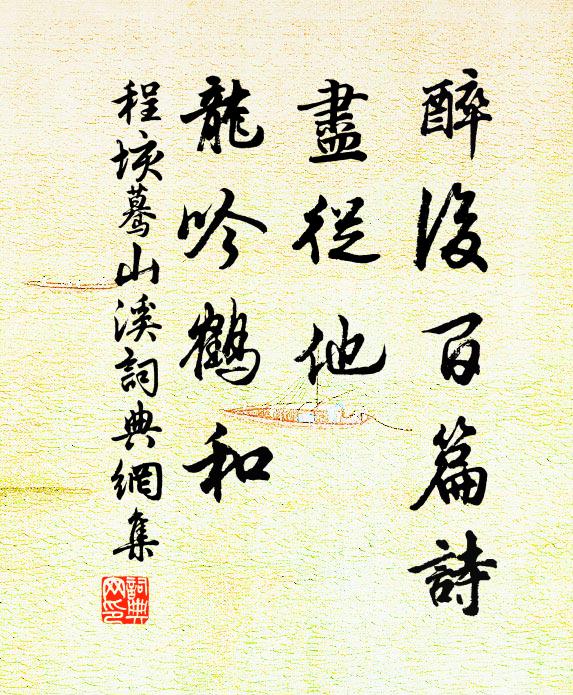 醉後百篇詩
盡從他
龍吟鶴和
程垓驀山溪詞典網集
詞典網印